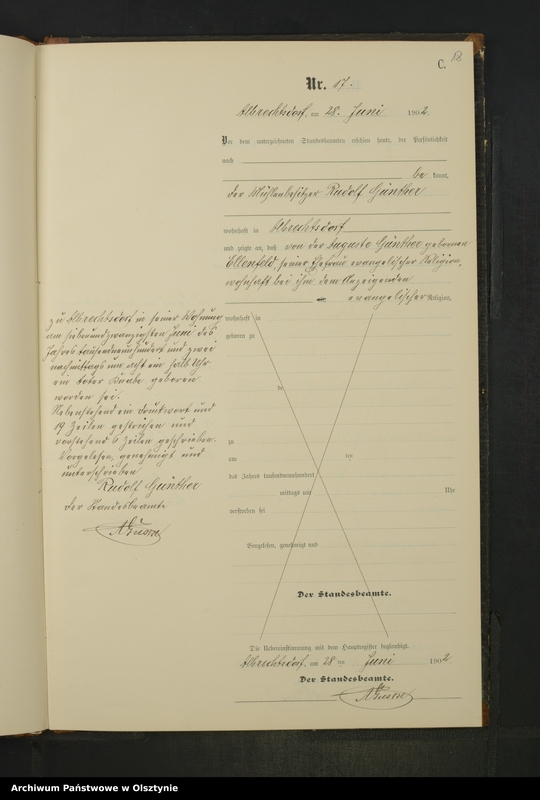 C.
18
Nr. 17.
Albrechtsdorf, am 28. Juni 1902.
Vor dem unterzeichneten Standesbeamten erschien heute, der Persönlichkeit
nach
be kannt,
der Mühlenbesitzer Rudolf Günther
wohnhaft in Albrechtsdorf
und zeigte an, daß von der Auguste Günther gebornen
Ellenfeld, seiner Ehefrau evangelischer Religion,
wohnhaft bei ihm dem Anzeigenden
evangelischer Religion,
zu Albrechtsdorf in seiner Wohnung
am siebenundzwanzigsten Juni des
Jahres tausendneunhundert und zwei
nachmittags um acht ein halb Uhr
ein toter Knabe geboren
worden sei.
Nebenstehend ein Druckwort und
19 Zeilen gestrichen und
vorstehend 6 Zeilen geschrieben.
Vorgelesen, genehmigt und
unterschrieben
Rudolf Günther
Der Standesbeamte
wohnhaft in
geboren zu
de
zu
am ten
des Jahres tausendneunhundert
mittags um Uhr
verstorben sei
Vorgelesen, genehmigt und
Der Standesbeamte.
Die Uebereinstimmung mit dem Hauptregister beglaubigt.
Albrechtsdorf, am 28 ten Juni 1902
Der Standesbeamte.
Archiwum Państwowe w Olsztynie